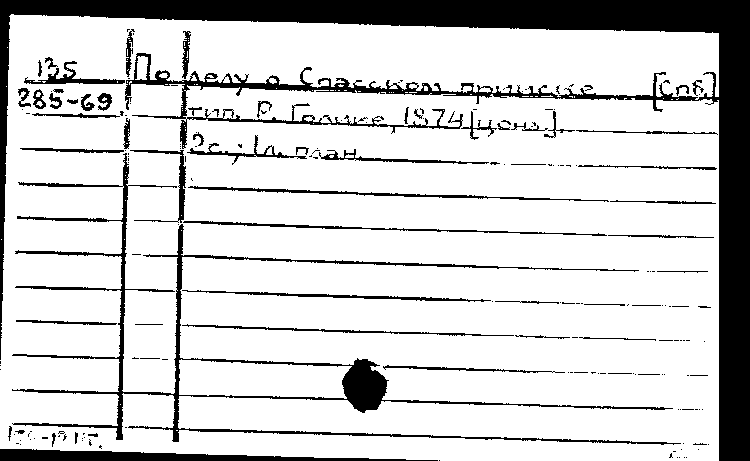 135 По делу о Спасском прииске [Спб.]
285-69 тип. Р. Голике, 1874 [ценз.].
2с.; 1л. план.